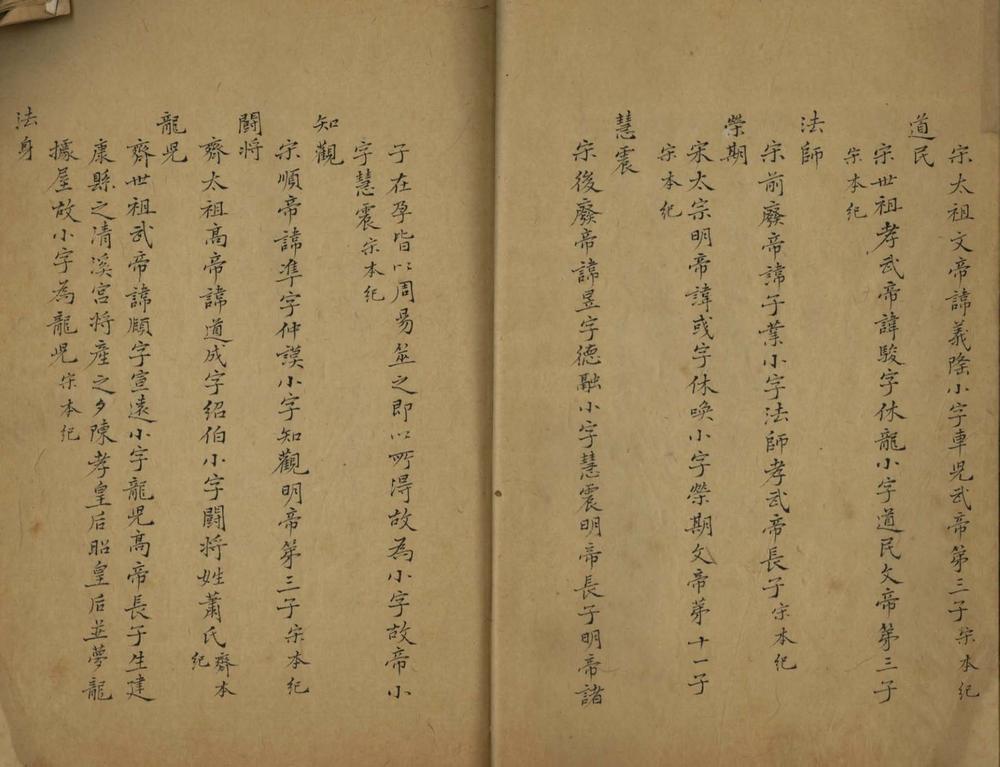 宗太祖文帝諱義隆小字車児武帝第三子宗本紀
道民
宗世祖孝武帝諱駿字休龍小字道民文帝第三子
宗本紀
法師
宗前廢帝諱子業小字法師孝武帝長子宗本紀
榮期
宋太宗明帝諱彧字休喚小字榮期文帝第十一子
宗本紀
慧震
宗後廢帝諱昱字德融小字慧震明帝長子明帝諸
子在孕皆以周易筮之即以所得故為小字故帝小
字慧震宗本紀
知觀
宗順帝諱凖字仲謨小字知觀明帝第三子宗本紀
闘将
齊太祖高帝諱道成字紹伯小字闘将姓蕭氏齊本
紀
龍児
齊世祖武帝諱頤字宣遠小字龍児高帝長子生建
康縣之清溪宮将產之夕陳孝皇后昭皇后並夢龍
據屋故小字為龍児宗本紀
法身